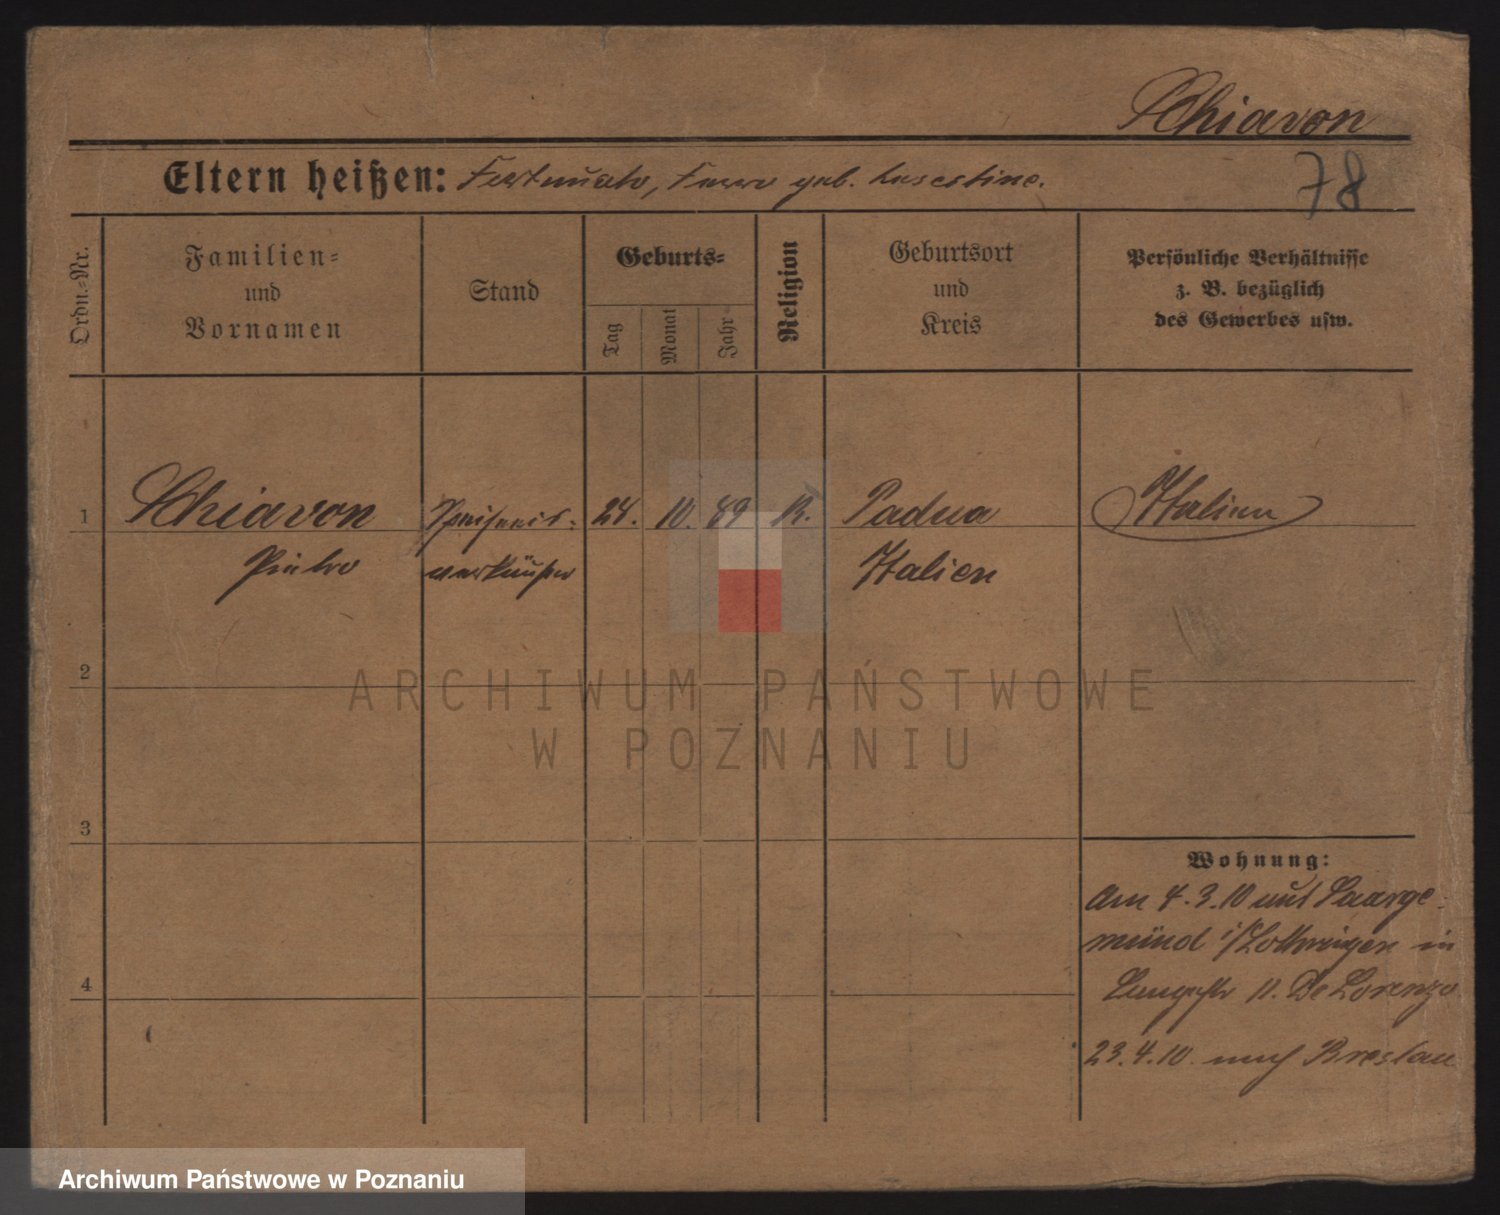 Schiavon
Eltern heißen: Fortunato, geb.
78
Ordn.-Nr.
Familien-
und
Vornamen
Stand
Geburts-
Tag
Monat
Jahr
Religion
Geburtsort
und
Kreis
Persönliche Verhältnisse
z. B. bezüglich
des Gewerbes usw.
1 Schiavon Speiseeis- 24. 10. 89 R. Padua Italien
Pietro verkäufer Italien
2
3
4
Wohnung:
Am 4.3.10 aus Saarge-
münd i/Lothringen in
11. De Lorenzo
23.4.10 nach Breslau
ARCHIWUM PAŃSTWOWE
W POZNANIU
Archiwum Państwowe w Poznaniu